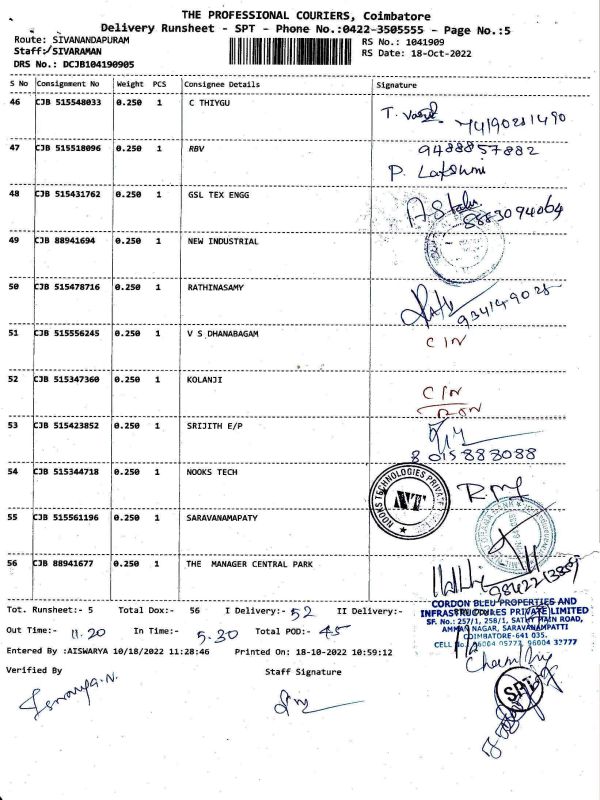 THE PROFESSIONAL COURIERS, Coimbatore
Delivery Runsheet - SPT - Phone No.:0422-3505555 - Page No.:5
Route: SIVANANDAPURAM
Staff: SIVARAMAN
DRS No.: DCJB104190905
RS No.: 1041909
RS Date: 18-Oct-2022
S No Consignment No Weight PCS Consignee Details Signature
46 CJB 515548033 0.250 1 C THIYGU
47 CJB 515518096 0.250 1 RBV
9488857882
P. Lakshmi
48 CJB 515431762 0.250 1 GSL TEX ENGG
8883094064
49 CJB 88941694 0.250 1 NEW INDUSTRIAL
50 CJB 515478716 0.250 1 RATHINASAMY
51 CJB 515556245 0.250 1 V S DHANABAGAM
C/N
52 CJB 515347360 0.250 1 KOLANJI
C/N
53 CJB 515423852 0.250 1 SRIJITH E/P
8015883088
54 CJB 515344718 0.250 1 NOOKS TECH
NOOKS TECHNOLOGIES PRIVATE
NT
55 CJB 515561196 0.250 1 SARAVANAMAPATY
56 CJB 88941677 0.250 1 THE MANAGER CENTRAL PARK
Tot. Runsheet:- 5 Total Dox:- 56 I Delivery:- 52 II Delivery:-
Out Time:- 11.20 In Time:- 5.30 Total POD:- 45
CORDON BLEU PROPERTIES AND
INFRASTRUCTURES PRIVATE LIMITED
SF. No.: 257/1, 258/1, SATHY MAIN ROAD,
AMMAN NAGAR, SARAVANAMPATTI
COIMBATORE-641 035.
CELL No. 96004 05777, 96004 32777
Entered By :AISWARYA 10/18/2022 11:28:46 Printed On: 18-10-2022 10:59:12
Verified By Staff Signature
SPT